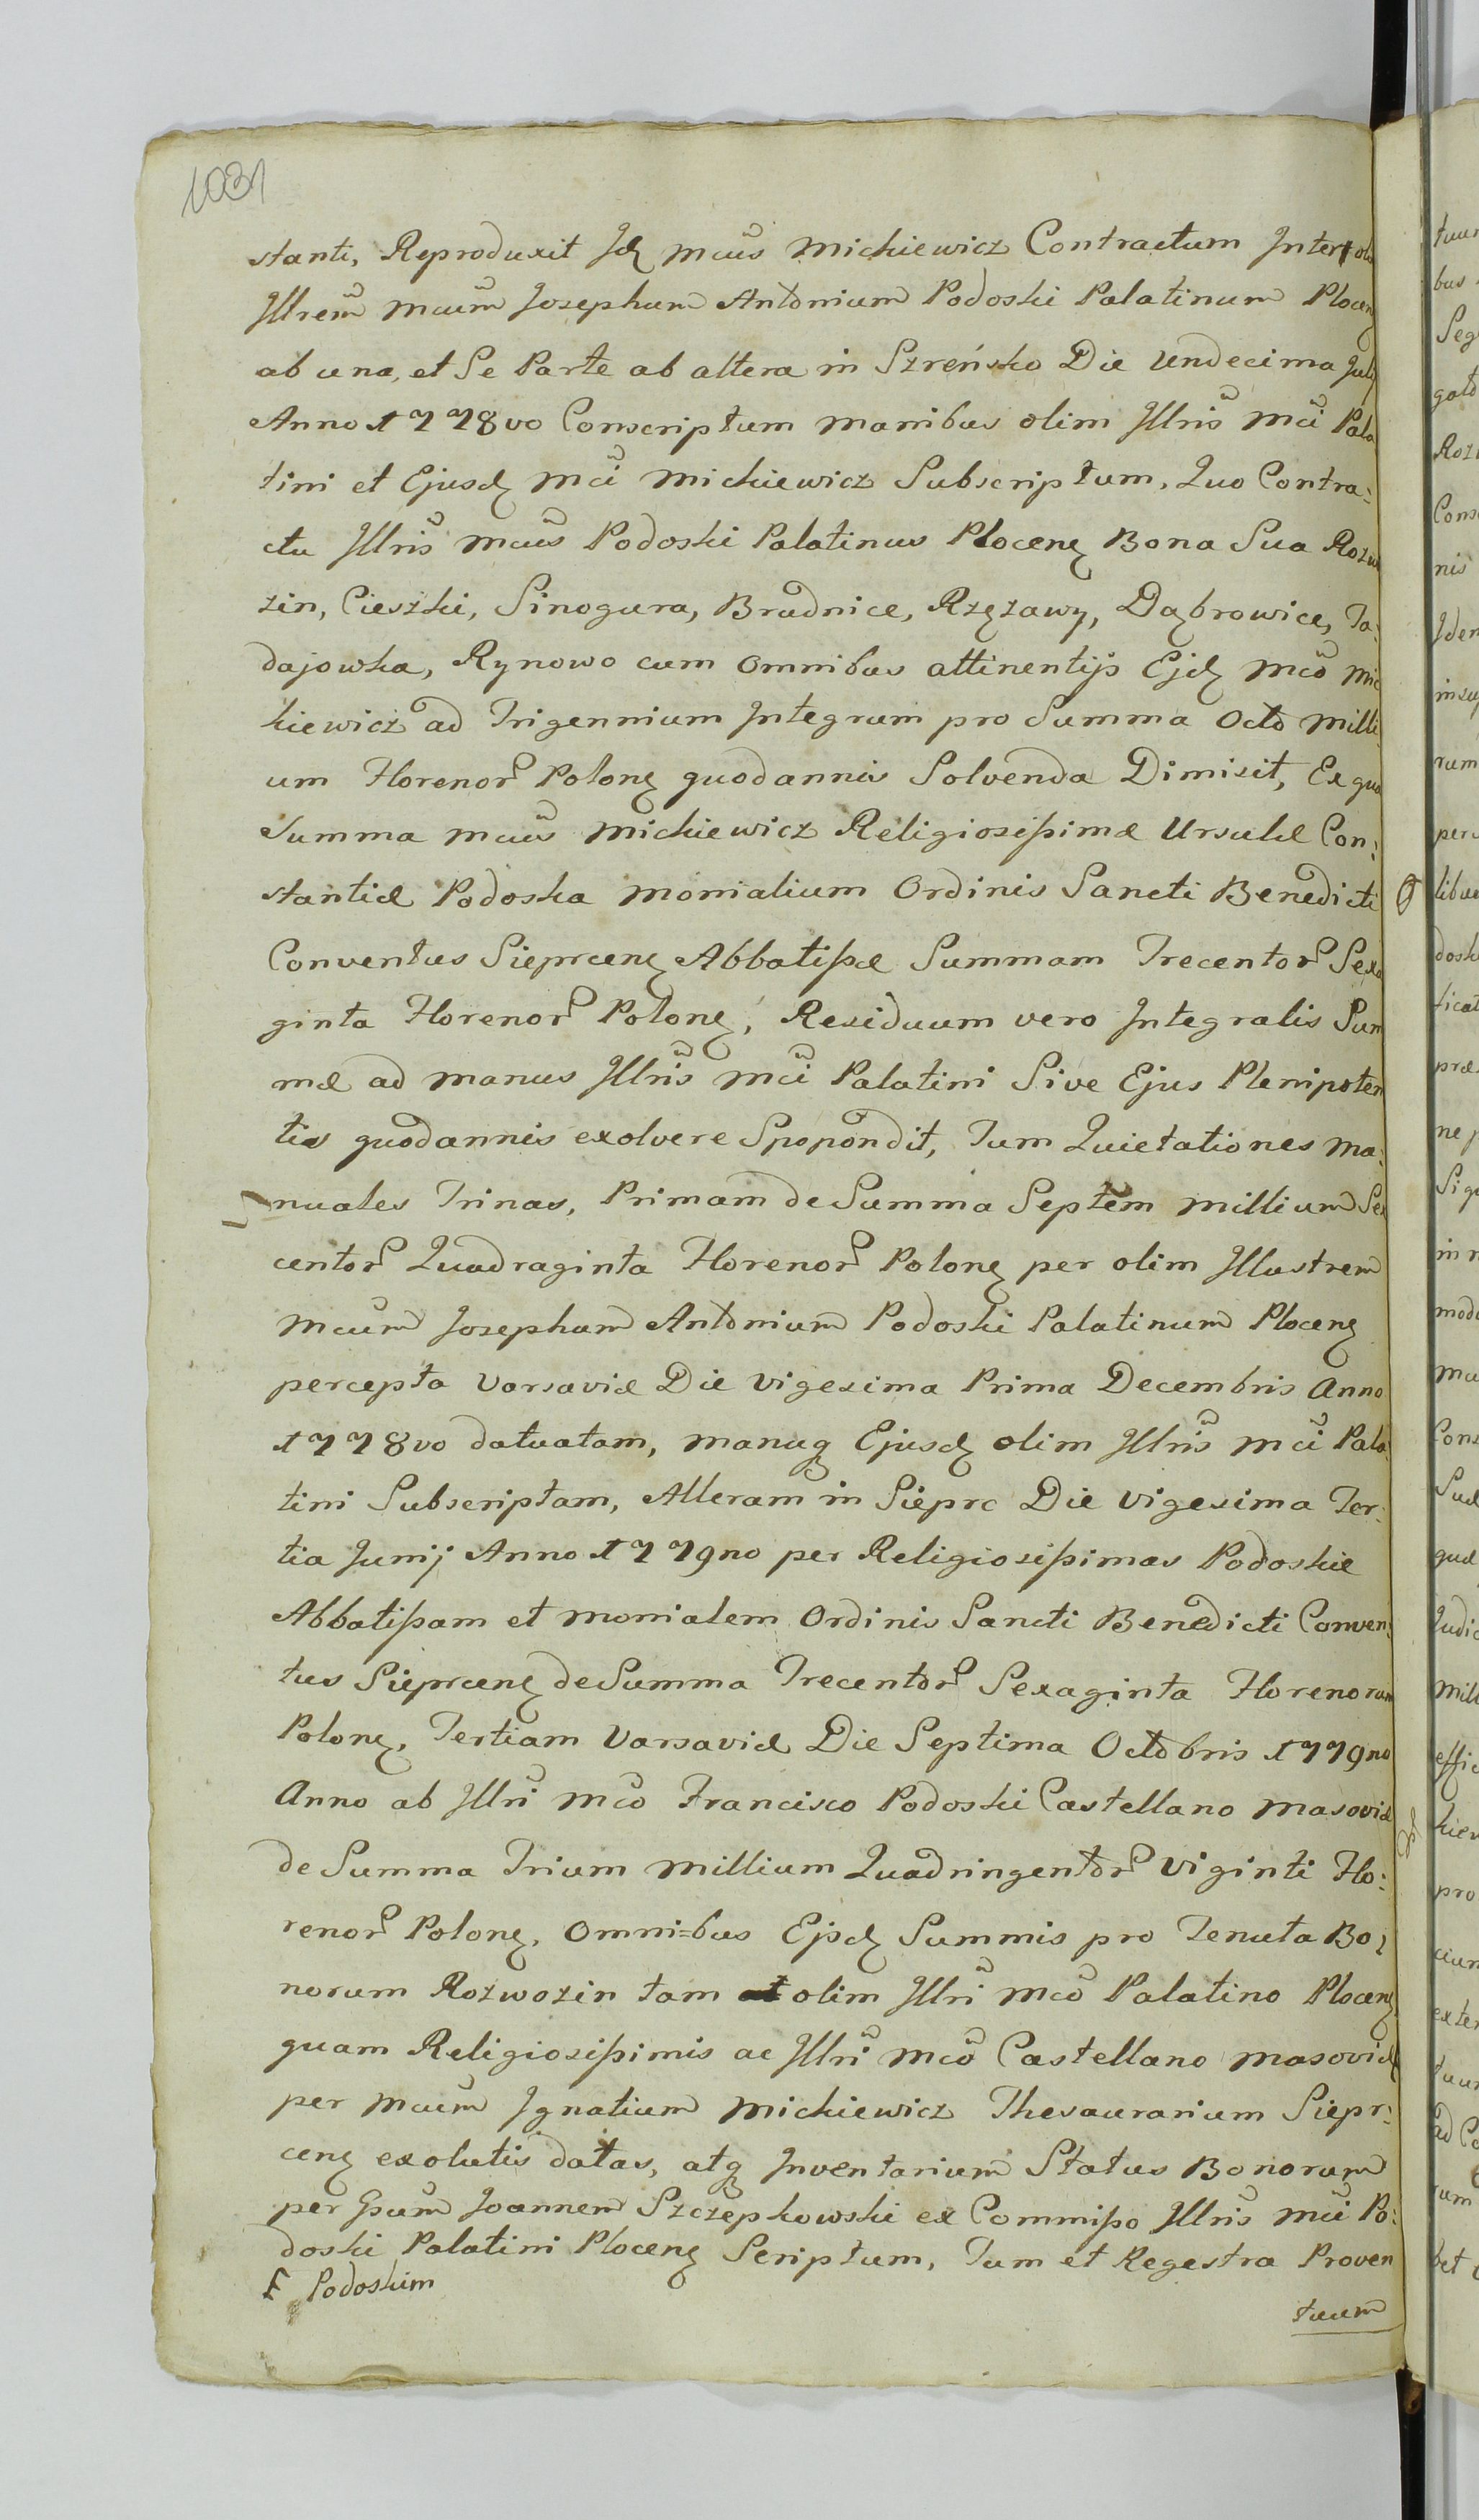 1031
stanti, Reproduxit Jd Mcus Mickiewicz Contractum Inter olim
Jllrem Mcum Josephum Antonium Podoski Palatinum Plocen
ab una, et Se Parte ab altera in Szreńsko Die Undecima Julij
Anno 1778vo Conscriptum Manibus olim Jllris Mci Pala
tini et Ejusd Mci Mickiewicz Subscriptum, Quo Contra:
ctu Jllris Mcus Podoski Palatinus Plocen Bona Sua Rozw
zin, Cieszki, Sinogura, Brudnice, Rzęzawy, Dąbrowice, Ta:
dajowka, Rynowo cum Omnibus attinentijs Ejd Mco Mic
kiewicz ad Trigennium Integrum pro Summa Octo Milli
um Florenor Polon quodannis Solvenda Dimisit, Ex qua
Summa Mcus Mickiewicz Religiosissimæ Ursulæ Con:
stantiæ Podoska Monialium Ordinis Sancti Benedicti
Conventus Sieprcen Abbatissæ Summam Trecentor Sexa
ginta Florenor Polon, Residuum vero Integralis Sum
mæ ad manus Jllris Mci Palatini Sive Ejus Plenipoten
tis quodannis exolvere Spopondit, Tum Quietationes Ma:
nuales Trinas, Primam de Summa Septem Millium Sex
centor Quadraginta Florenor Polon per olim Jllustrem
Mcum Josephum Antonium Podoski Palatinum Plocen
percepta Varsaviæ Die Vigesima Prima Decembris Anno
1778vo datuatam, manuq Ejusd olim Jllris Mci Pala
tini Subscriptam, Alteram in Sieprc Die Vigesima Ter:
tia Junij Anno 1779no per Religiosissimas Podoskie
Abbatissam et Monialem Ordinis Sancti Benedicti Conven:
tus Sieprcen de Summa Trecentor Sexaginta Florenorum
Polon, Tertiam Varsaviæ Die Septima Octobris 1779no
Anno ab Jllri Mco Francisco Podoski Castellano Masoviæ
de Summa Trium Millium Quadringentor Viginti Flo:
renor Polon, Omni=bus Ejsd Summis pro Tenuta Bo:
norum Rozwozin tam olim Jllri Mco Palatino Plocen
quam Religiosissimis ac Jllri Mco Castellano Masoviæ
per Mcum Ignatium Mickiewicz Thesaurarium Siepr:
cen exolutis datas, atq Inventarium Status Bonorum
per Gsum Joannem Szczepkowski ex Commisso Jllris Mci Po:
doski Palatini Plocen Scriptum, Tum et Regestra Proven
F Podoskim
tuum